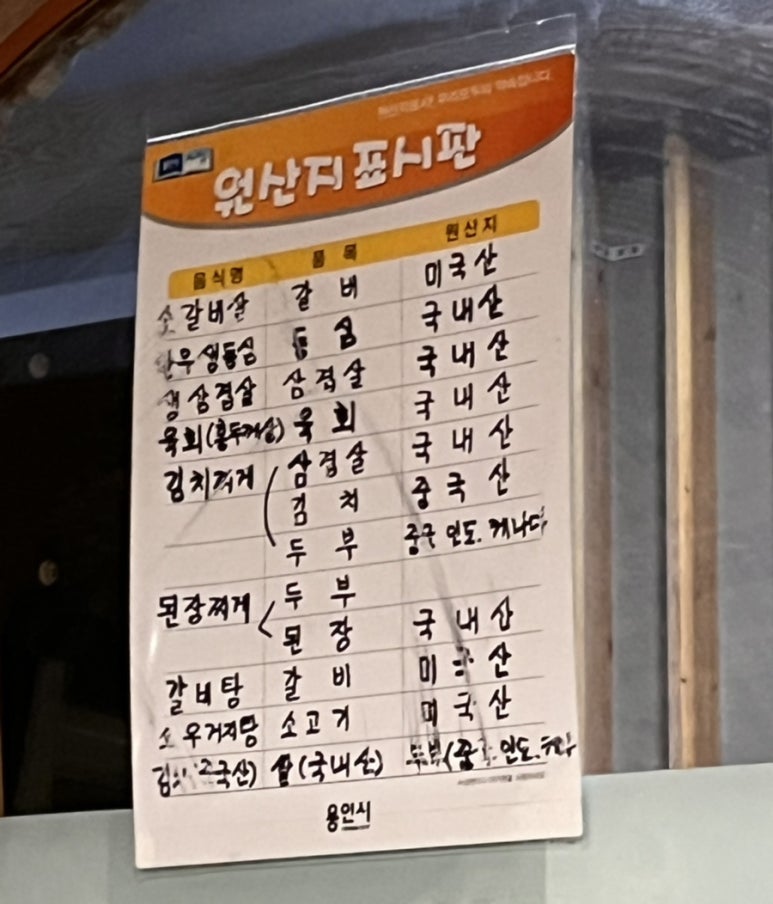 원산지 표시판
음식명 품목 원산지
소갈비살 갈비 미국산
한우생등심 등심 국내산
생삼겹살 삼겹살 국내산
육회(홍두깨살) 육회 국내산
김치찌게 삼겹살 국내산
김치 중국산
두부 중국. 인도. 캐나다
된장찌게 두부
된장 국내산
갈비탕 갈비 미국산
소우거지탕 소고기 미국산
김치(중국산) 쌀(국내산) 두부(중국. 인도.
용인시